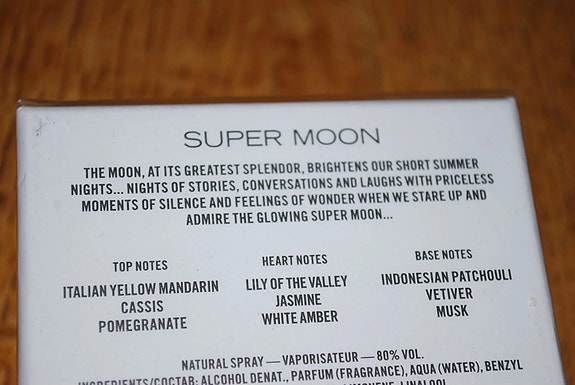 SUPER MOON
THE MOON, AT ITS GREATEST SPLENDOR, BRIGHTENS OUR SHORT SUMMER
NIGHTS... NIGHTS OF STORIES, CONVERSATIONS AND LAUGHS WITH PRICELESS
MOMENTS OF SILENCE AND FEELINGS OF WONDER WHEN WE STARE UP AND
ADMIRE THE GLOWING SUPER MOON...
TOP NOTES
ITALIAN YELLOW MANDARIN
CASSIS
POMEGRANATE
HEART NOTES
LILY OF THE VALLEY
JASMINE
WHITE AMBER
BASE NOTES
INDONESIAN PATCHOULI
VETIVER
MUSK
NATURAL SPRAY — VAPORISATEUR — 80% VOL.
INGREDIENTS/COCTAB: ALCOHOL DENAT., PARFUM (FRAGRANCE), AQUA (WATER), BENZYL
LINALOOL